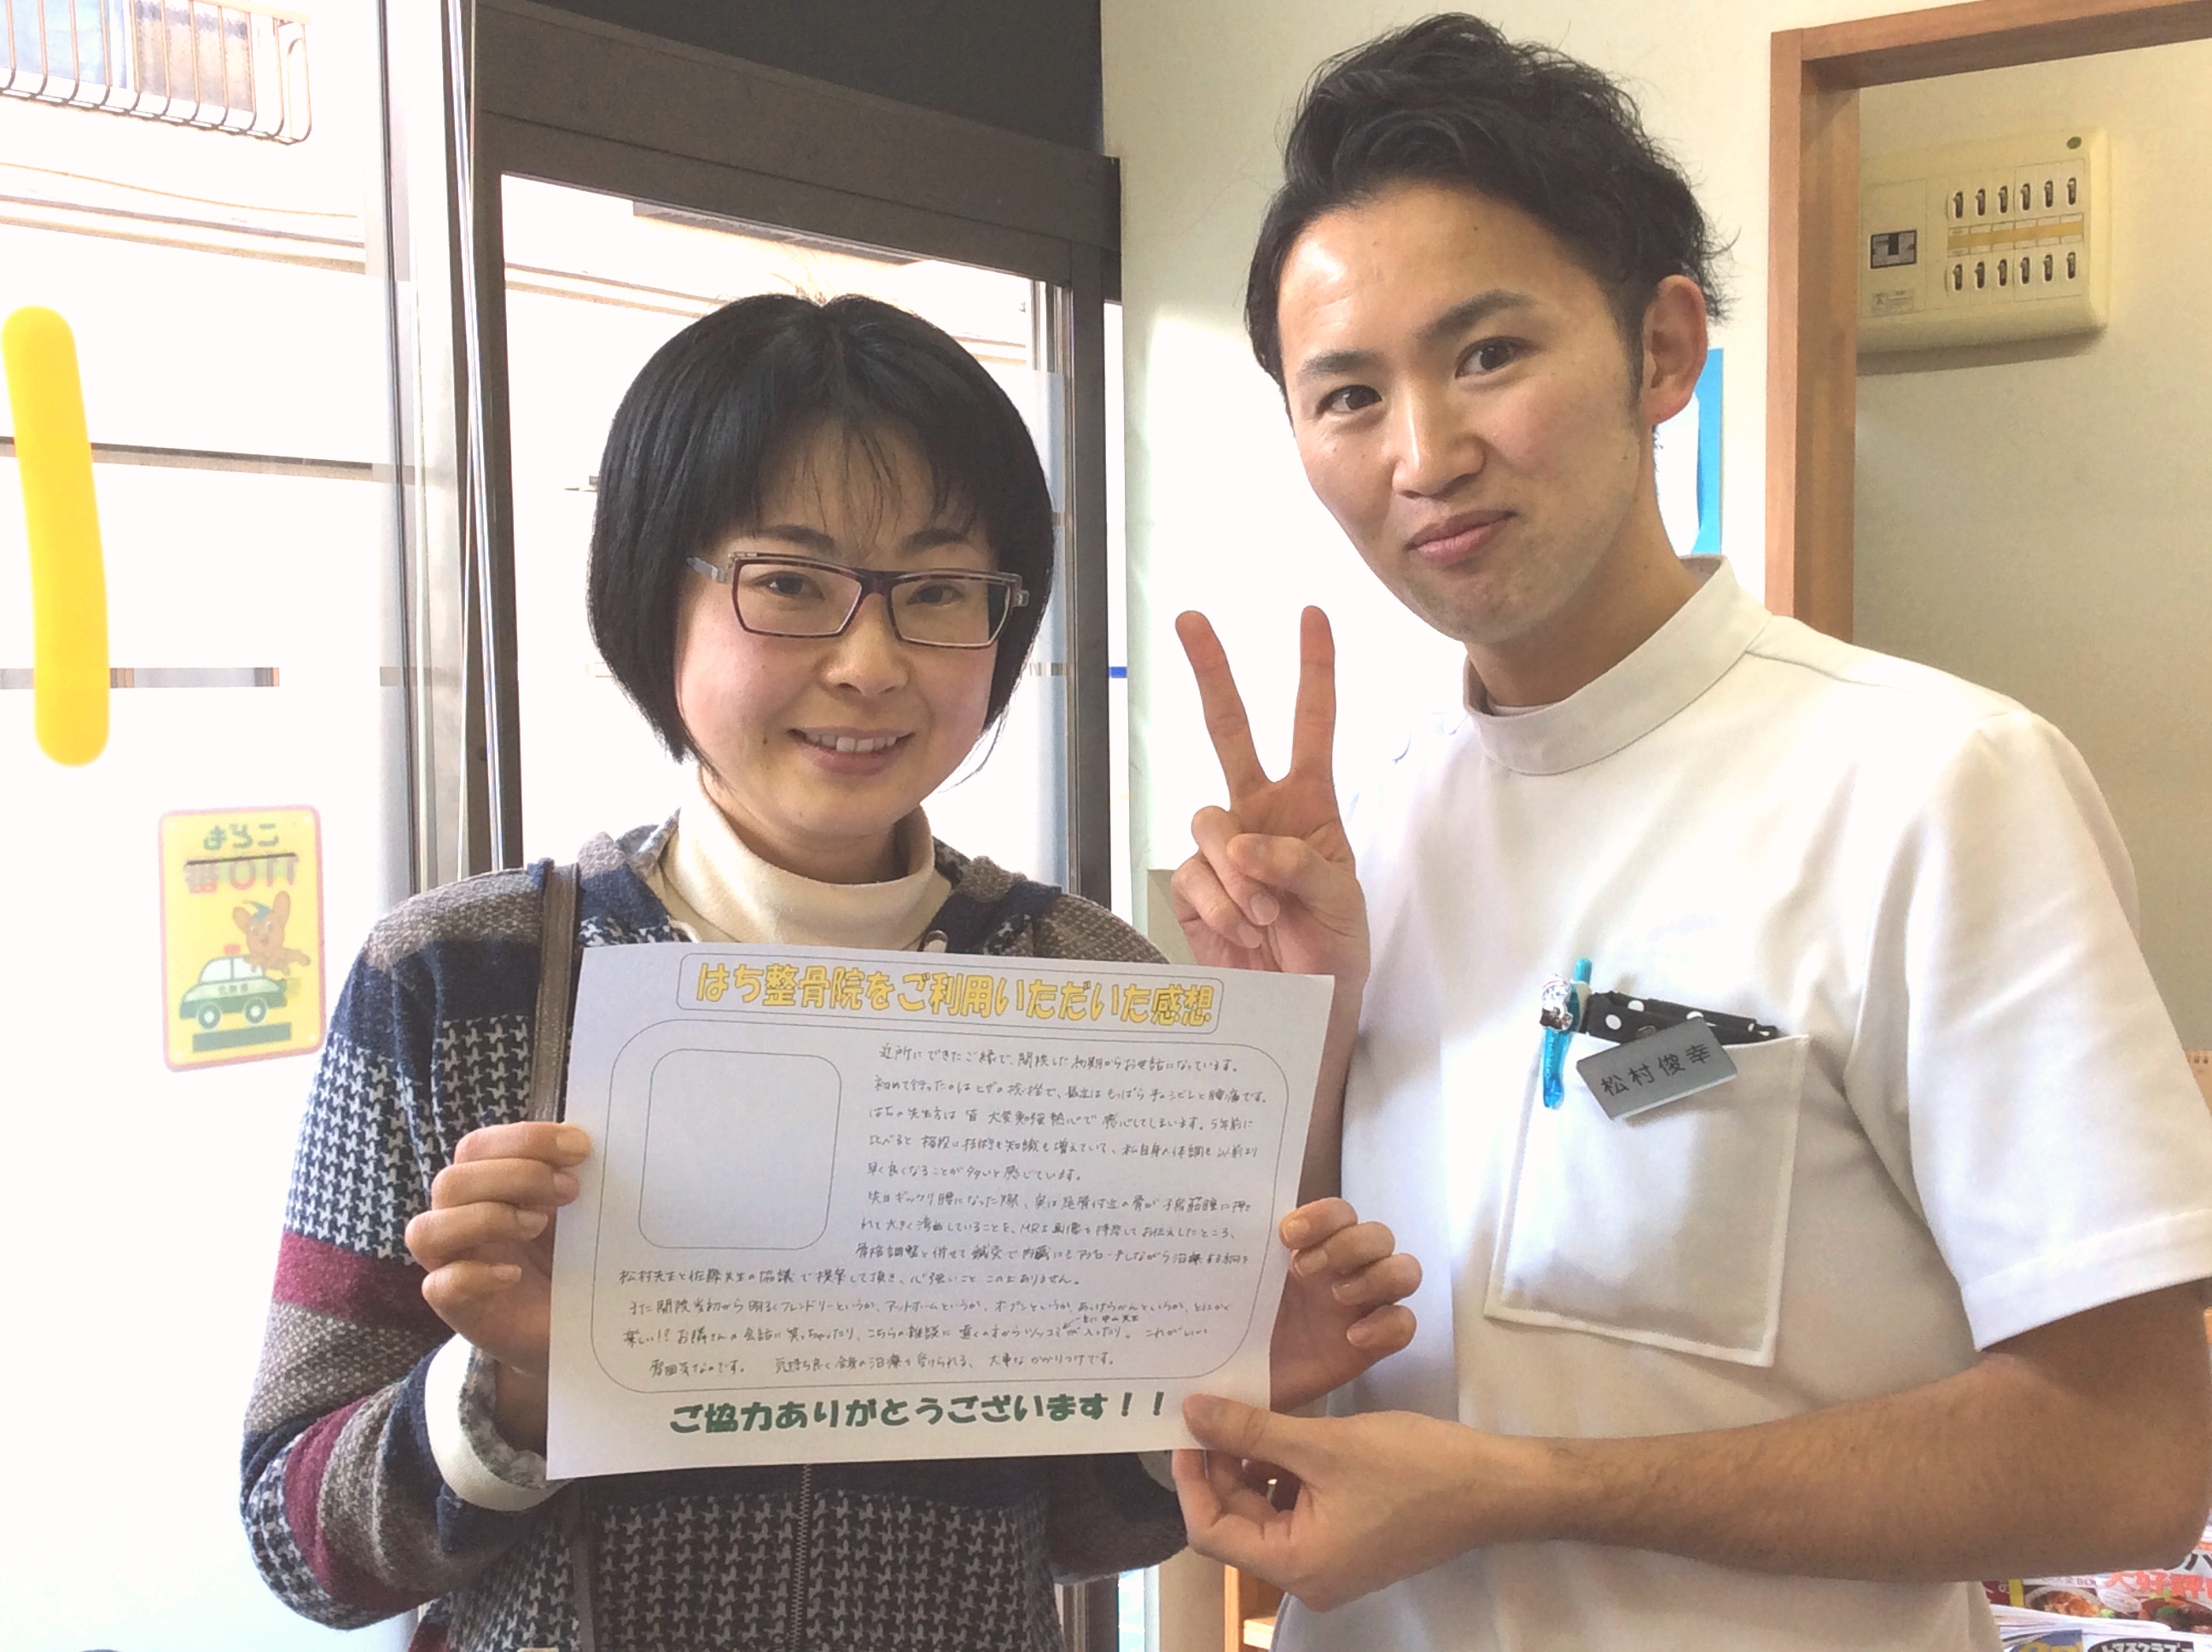 こども
110番
はち整骨院をご利用いただいた感想
近所にできたご縁で、開院した初期からお世話になっています。
初めて行ったのはヒザの捻挫で、最近はもっぱら手のシビレと腰痛です。
はちの先生方は皆 大変勉強熱心で 感心してしまいます。5年前に
比べると 格段に技術も知識も増えていて、私自身の体調も以前より
早く良くなることが多いと感じています。
先日ギックリ腰になった際、実は尾骨付近の骨が子宮筋腫に押さ
れて大きく湾曲していることを、MRI画像を持参してお伝えしたところ、
骨格調整と併せて鍼灸で内臓にもアプローチしながら治療する
松村先生と佐藤先生の協議で提案して頂き、心強いこと この上ありません。
また開院当初から明るくフレンドリーというか、アットホームというか、オープンというか、あっけらかんというか、とにかく
楽しい!? お隣さんの会話に笑っちゃったり、こちらの雑談に遠くの方からツッコミが入ったり。これがいい
雰囲気なのです。 気持ち良く全身の治療を受けられる、大事なかかりつけです。
ご協力ありがとうございます！！
松村俊幸
大好評